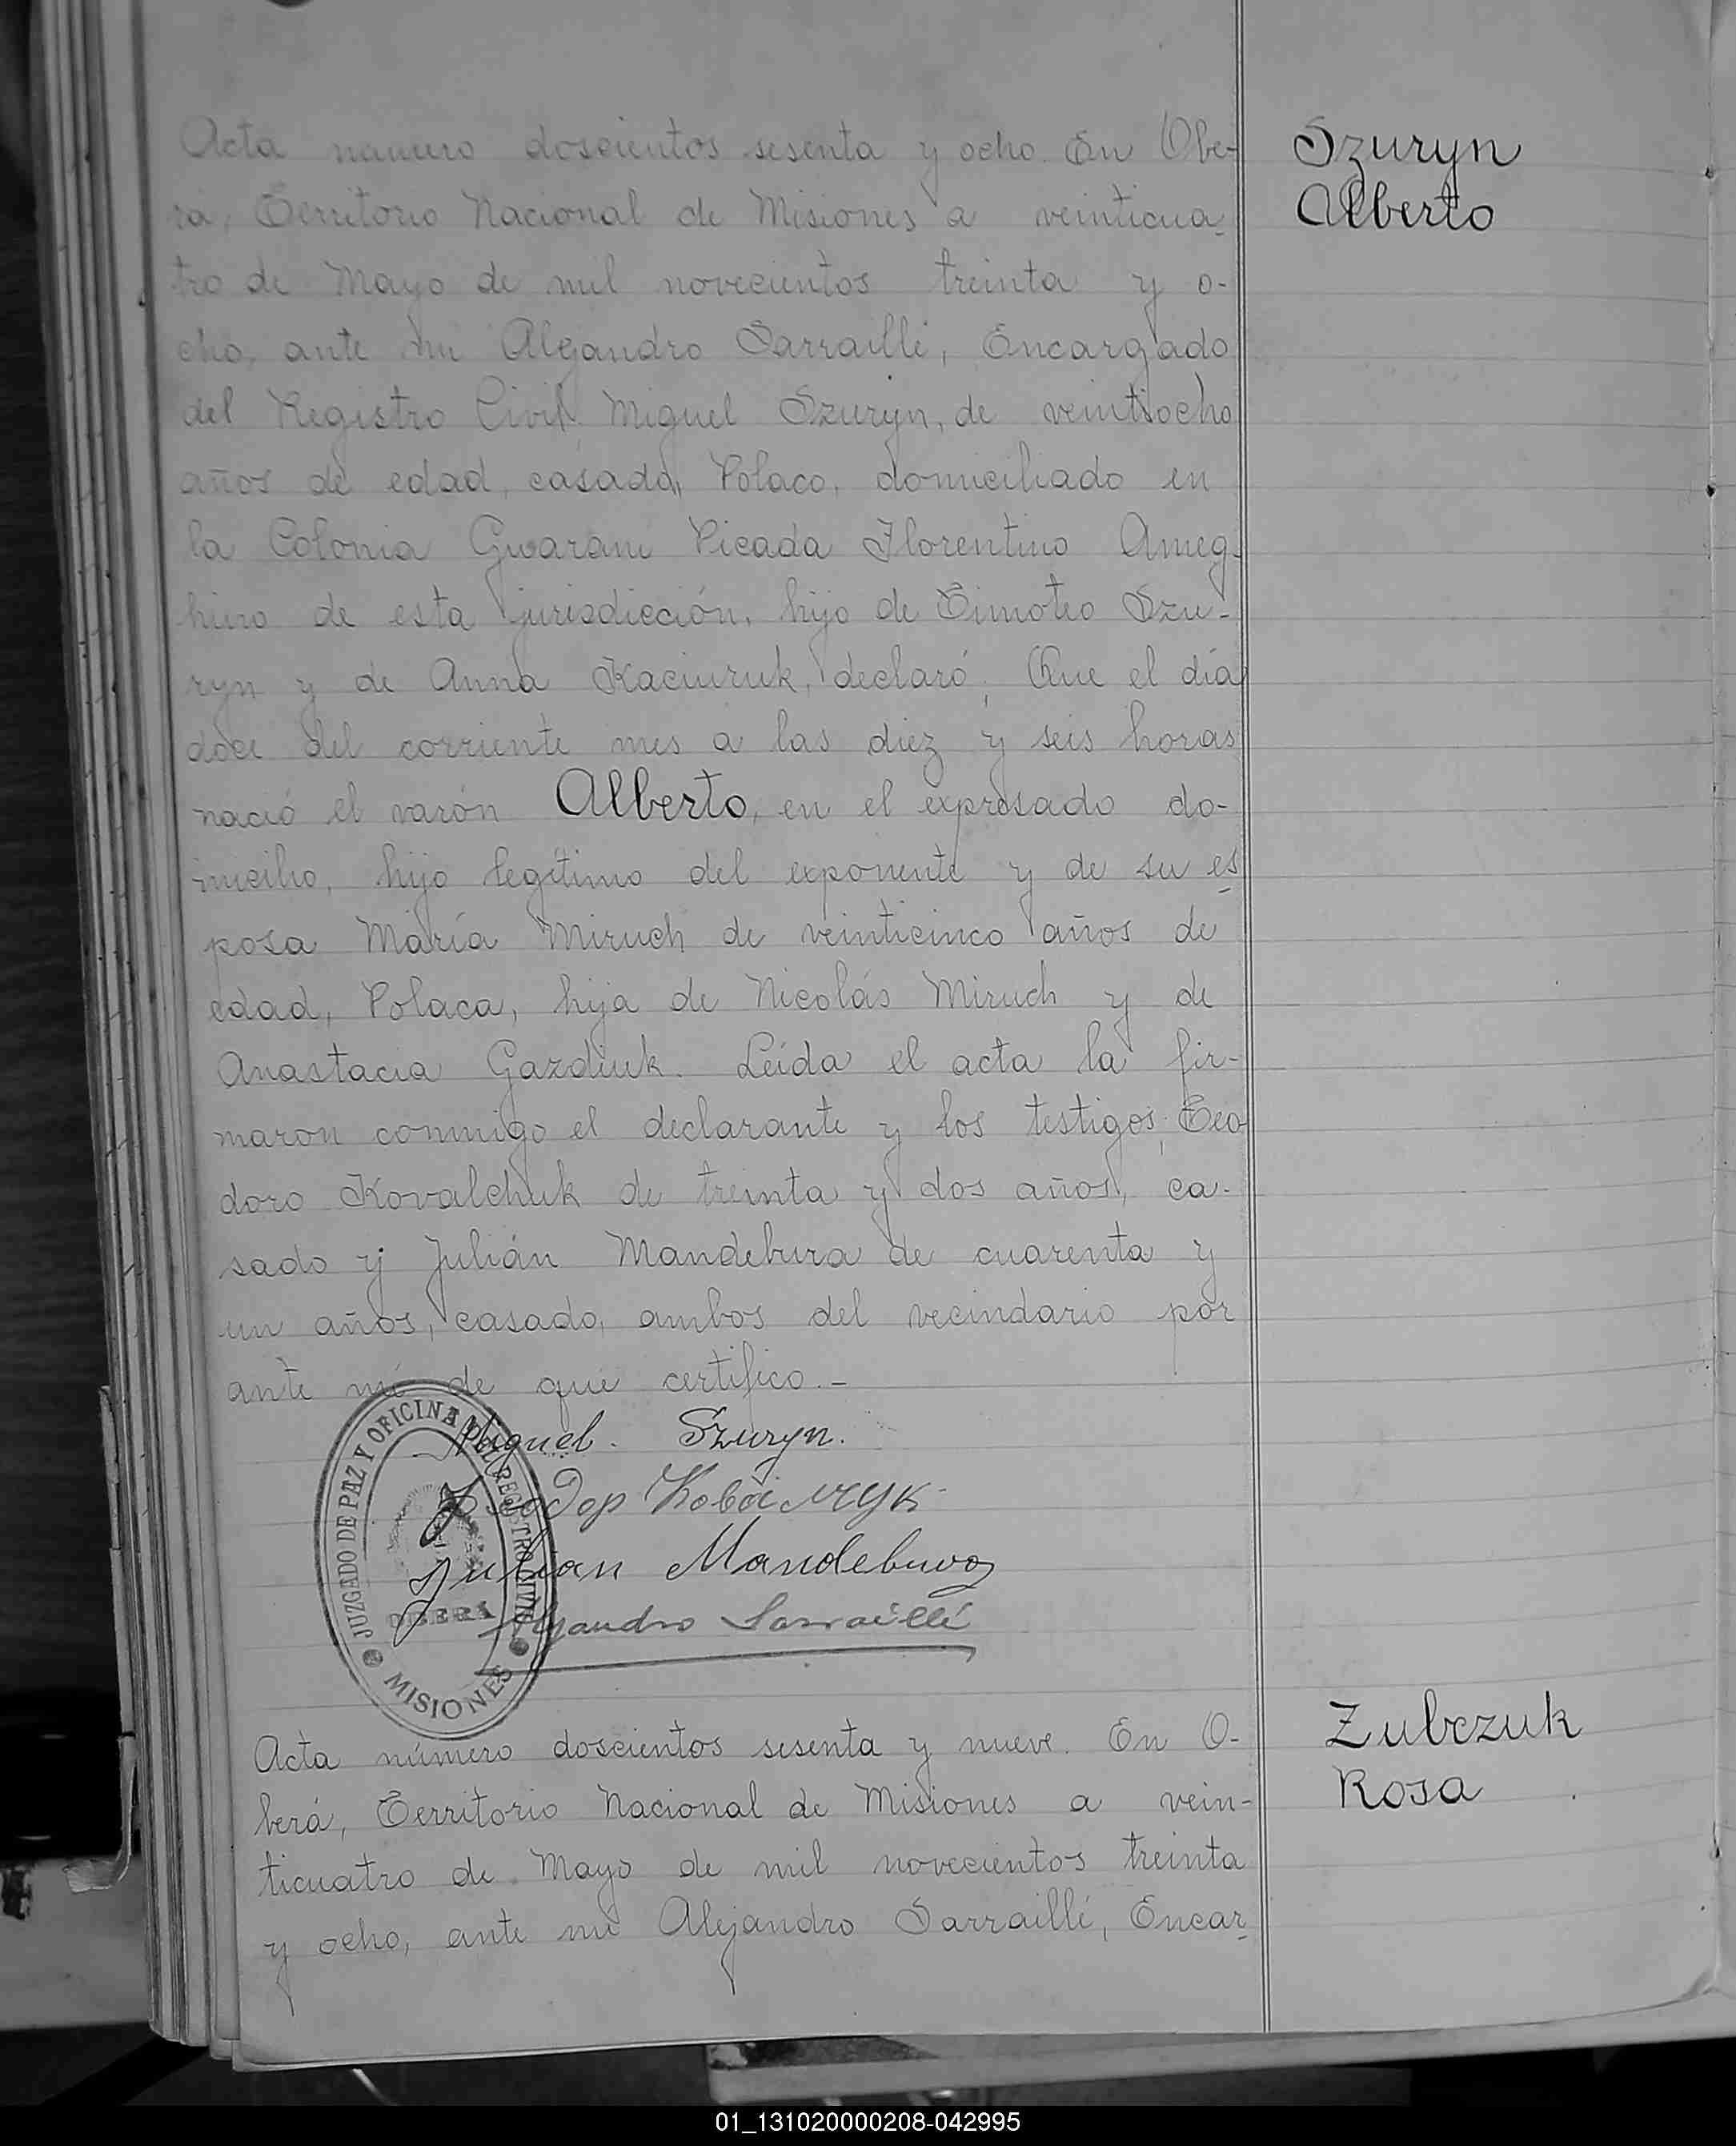 Szuryn
Alberto
Acta número doscientos sesenta y ocho. En Obe-
ra, Territorio Nacional de Misiones a veinticua-
tro de Mayo de mil novecientos treinta y o-
cho, ante mi Alejandro Sarraillé, Encargado
del Registro Civil. Miguel Szuryn, de veintiocho
años de edad, casado, Polaco, domiciliado en
la Colonia Guaraní Picada Florentino Ameg-
hino de esta jurisdicción, hijo de Timoteo Szu-
ryn y de Anna Kaciuruk, declaró; Que el día
doce del corriente mes a las diez y seis horas
nació el varón Alberto, en el expresado do-
micilio, hijo legítimo del exponente y de su es-
posa María Miruch de veinticinco años de
edad, Polaca, hija de Nicolás Miruch y de
Anastacia Gazdiuk. Leída el acta la fir-
maron conmigo el declarante y los testigos; Teo
doro Kovalchuk de treinta y dos años, ca-
sado y Julián Mandebura de cuarenta y
un años, casado, ambos del vecindario por
ante mí de que certifico.-
Miguel. Szuryn.
Julian Mandebura
Alejandro Sarraillé
JUZGADO DE PAZ Y OFICINA DEL REGISTRO CIVIL
OBERÁ
MISIONES
Zubczuk
Rosa
Acta número doscientos sesenta y nueve. En O-
berá, Territorio Nacional de Misiones a vein-
ticuatro de Mayo de mil novecientos treinta
y ocho, ante mi Alejandro Sarraillé, Encar-
01_131020000208-042995